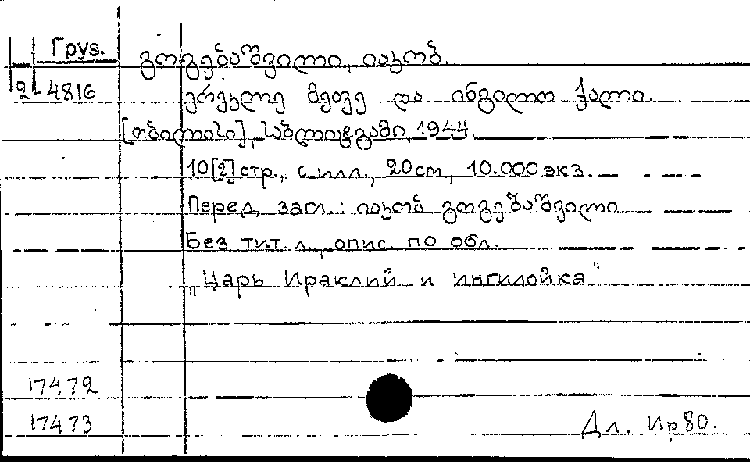 Груз. გოგებაშვილი, იაკობ.
2-4816 ერეკლე მეფე და ინგილო ქალი.
[თბილისი], საბლიტგამი, 1944
10[2] стр., с илл., 20см, 10.000 экз.
Перед загл.: იაკობ გოგებაშვილი
Без тит. л., опис. по обл.
"Царь Ираклий и ингилойка"
17472
17473 Дл. Ир80.